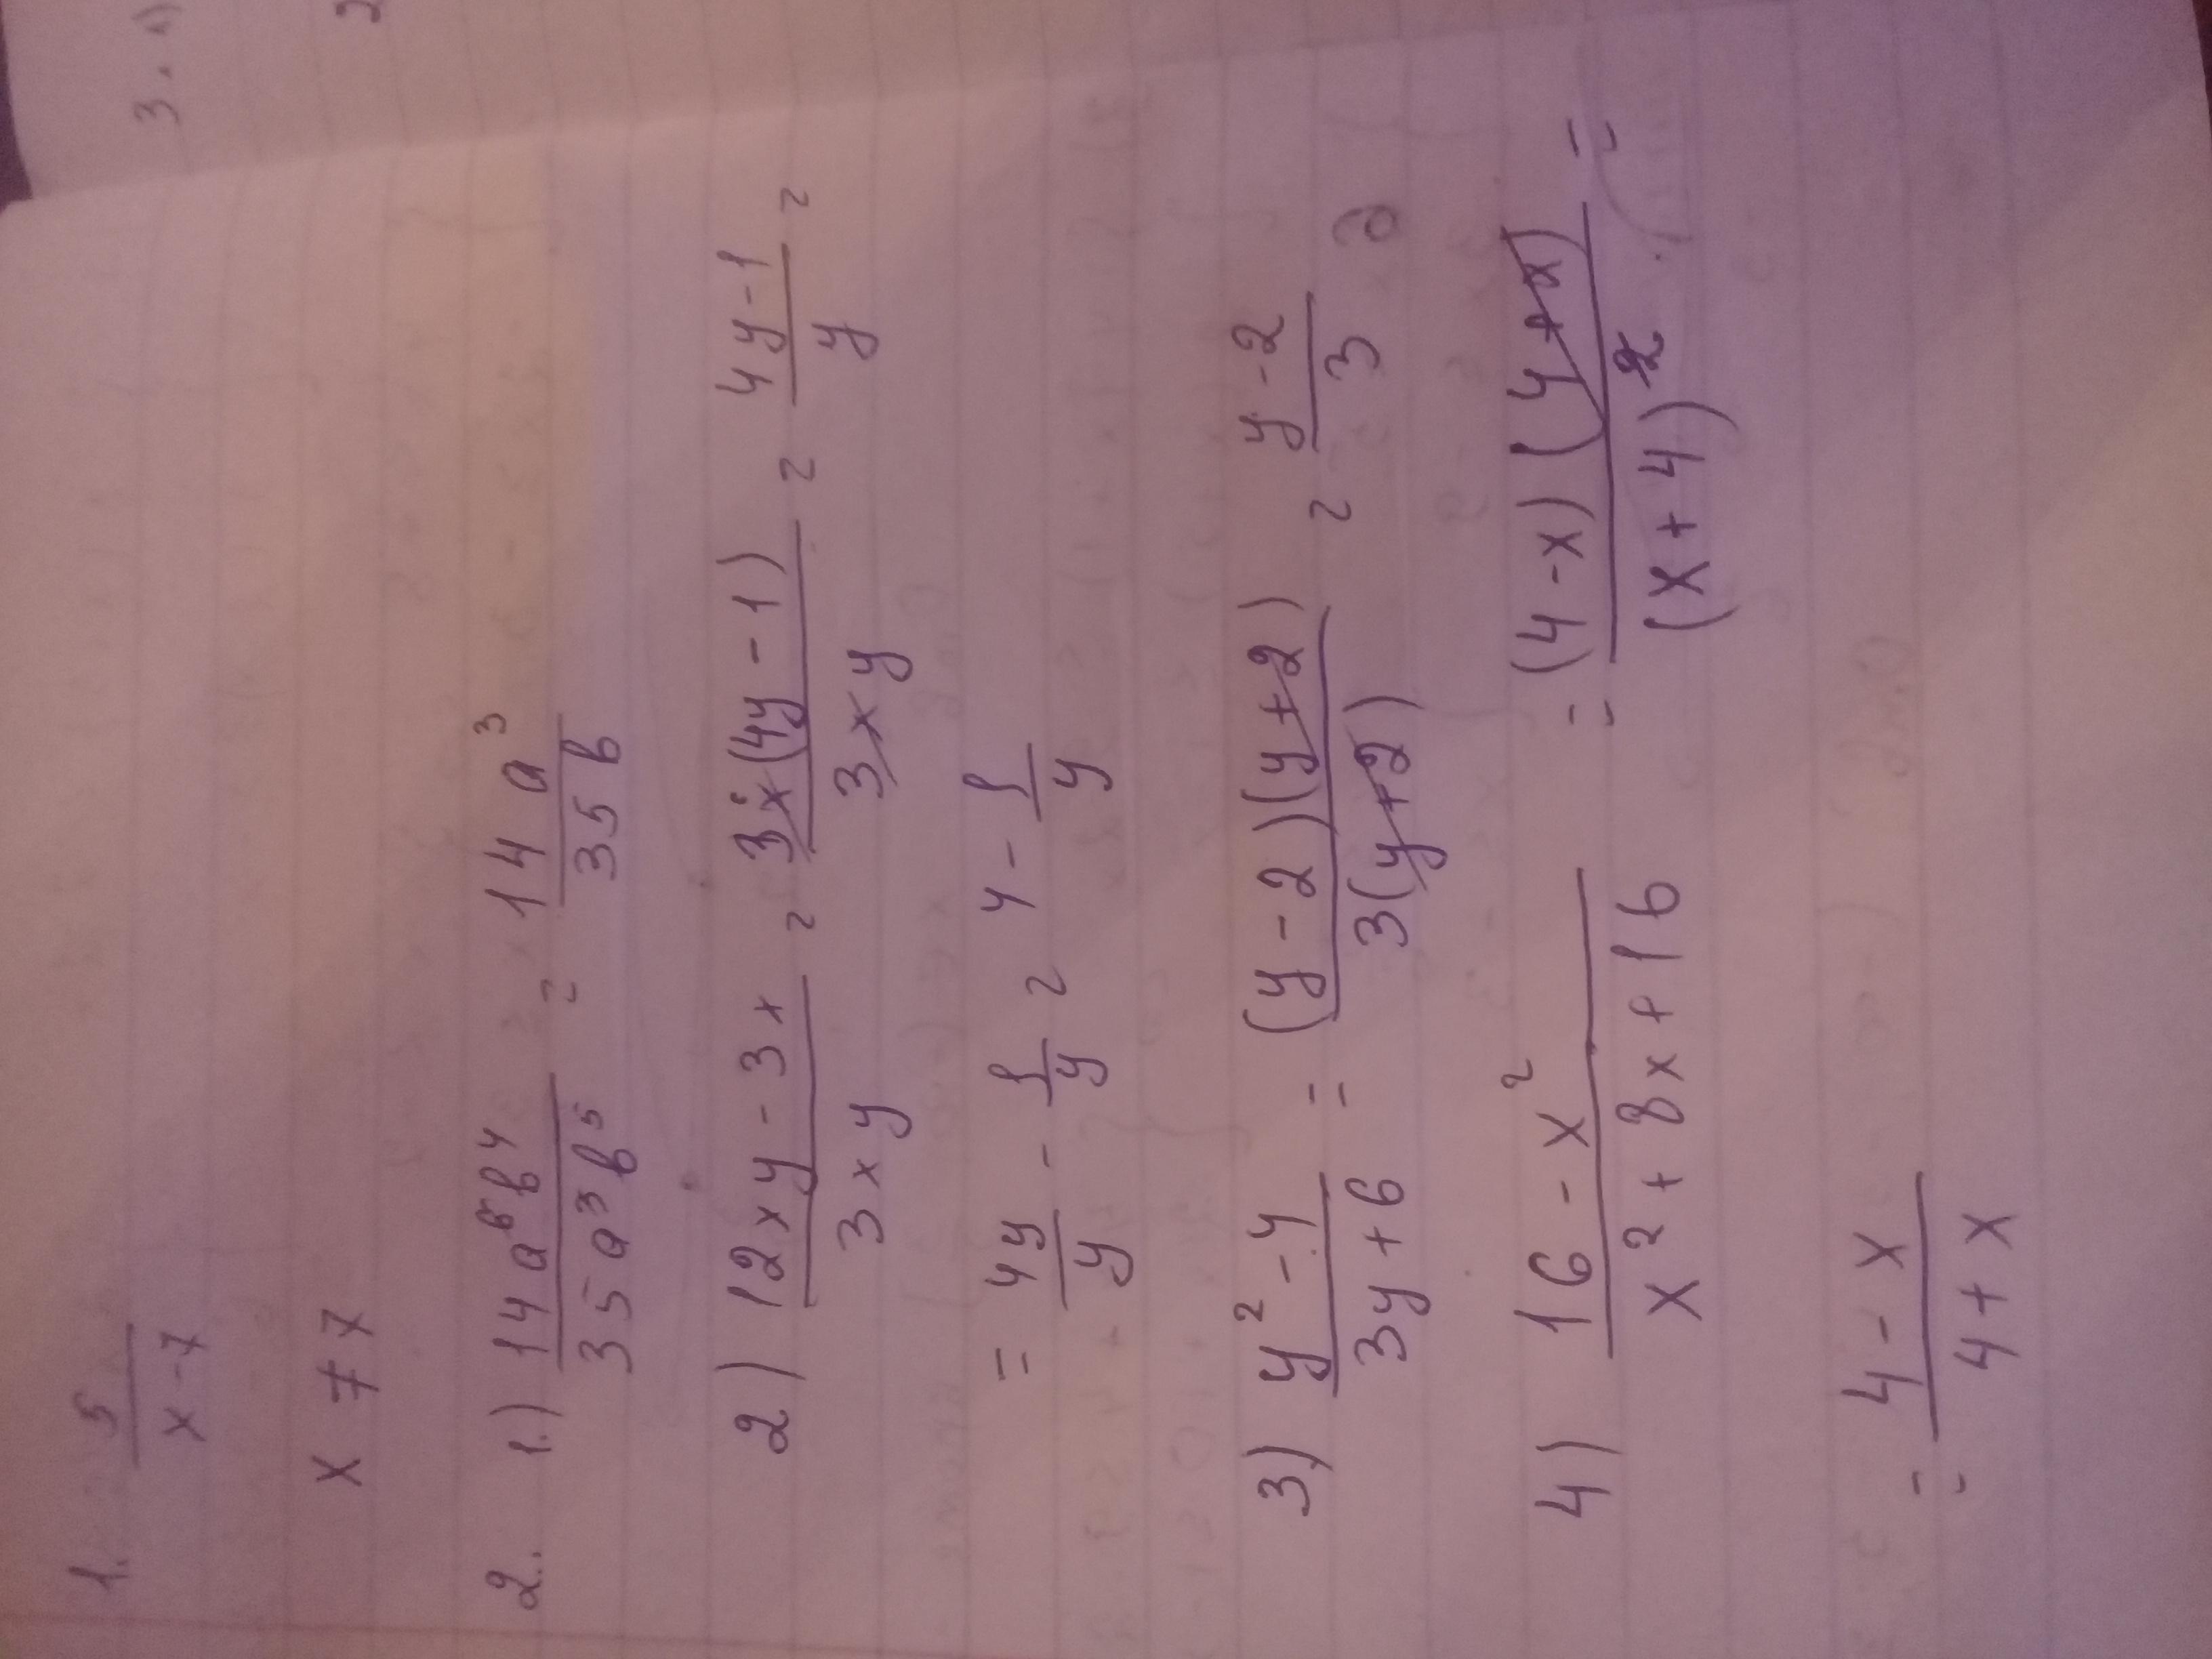 1. 5/(x-7)
x ≠ 7
2. 1.) (14a⁶b⁴)/(35a³b⁵) = (14a³)/(35b)
2) (12xy-3x)/(3xy) = (3x(4y-1))/(3xy) = (4y-1)/y =
= 4y/y - 1/y = 4 - 1/y
3) (y²-4)/(3y+6) = ((y-2)(y+2))/(3(y+2)) = (y-2)/3
4) (16-x²)/(x²+8x+16) = ((4-x)(4+x))/((x+4)²) =
= (4-x)/(4+x)
3. 1)
2